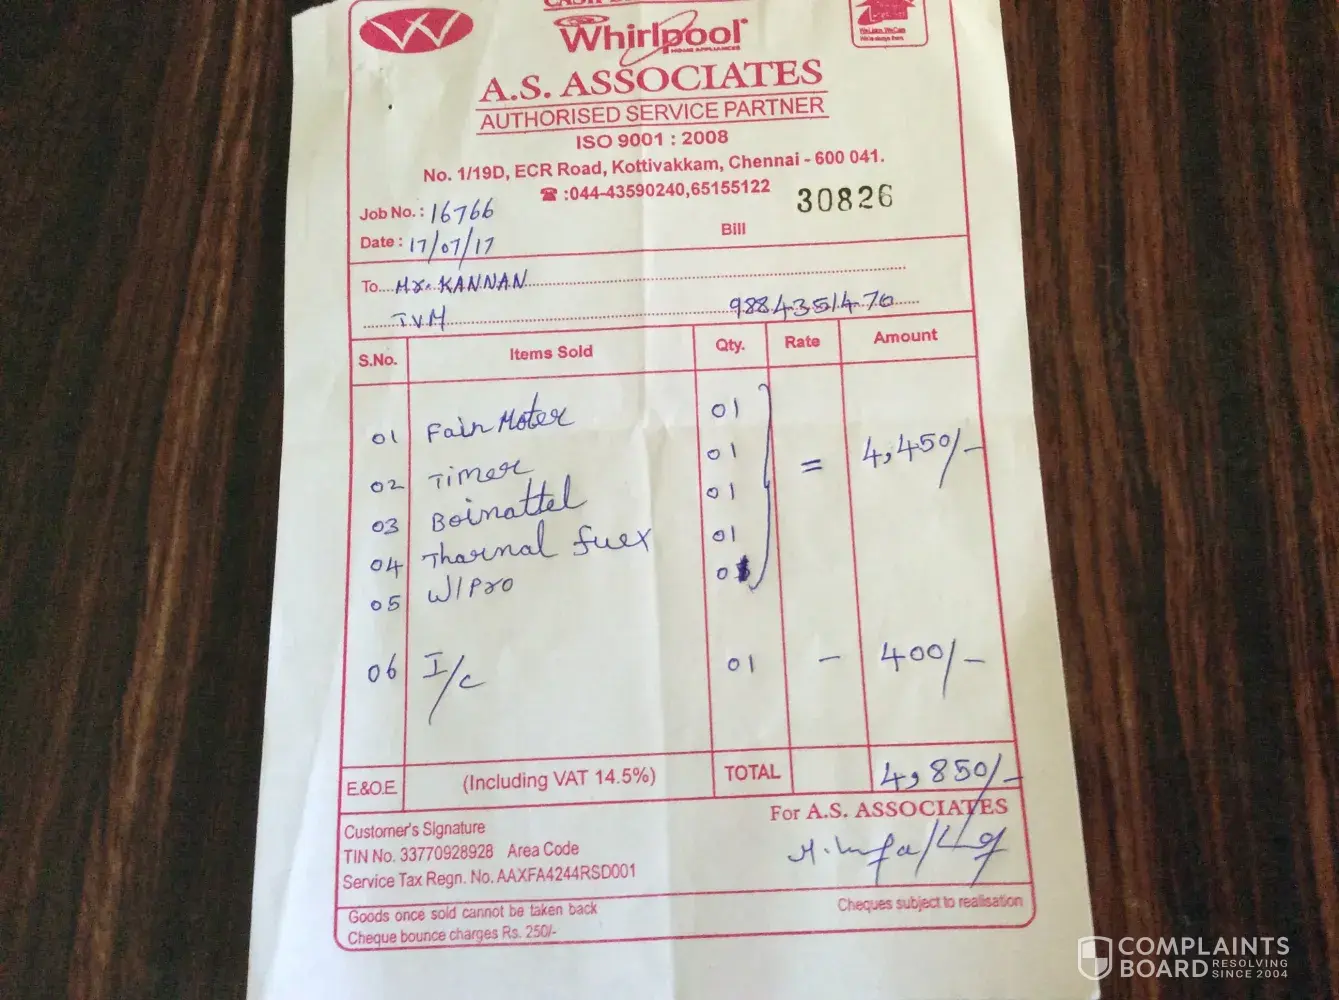 Whirlpool
HOME APPLIANCES
A.S. ASSOCIATES
AUTHORISED SERVICE PARTNER
ISO 9001 : 2008
No. 1/19D, ECR Road, Kottivakkam, Chennai - 600 041.
☎ :044-43590240,65155122
30826
Job No. : 16766
Date : 17/07/17
Bill
To....Mr. KANNAN
T.V.M 9884351476
S.No. Items Sold Qty. Rate Amount
01 Fain Moter 01
02 Timer 01 = 4,450/-
03 Boinattel 01
04 Tharnal fuex 01
05 W/Pro
06 I/c 01 - 400/-
E.&O.E (Including VAT 14.5%) TOTAL 4,850/-
For A.S. ASSOCIATES
Customer's Signature
TIN No. 33770928928 Area Code
Service Tax Regn. No. AAXFA4244RSD001
Goods once sold cannot be taken back
Cheques subject to realisation
Cheque bounce charges Rs. 250/-
COMPLAINTS
BOARD RESOLVING SINCE 2004